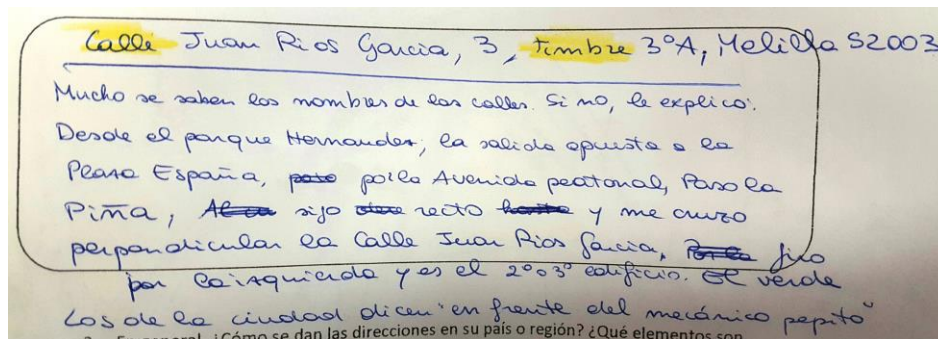 Calle Juan Rios Garcia, 3, timbre 3ºA, Melilla 52003
Mucho se saben los nombres de las calles. Si no, le explico:
Desde el parque Hernandez, la salida opuesta a la
Plaza España, paso por la Avenida peatonal, Paso la
Piña, sigo recto hasta y me cruzo
perpendicular la Calle Juan Rios Garcia, Por la jiro
por la izquierda y es el 2º o 3º edificio. El verde
Los de la ciudad dicen "en frente del mecánico pepito"
2. En general, ¿Cómo se dan las direcciones en su país o región? ¿Qué elementos son